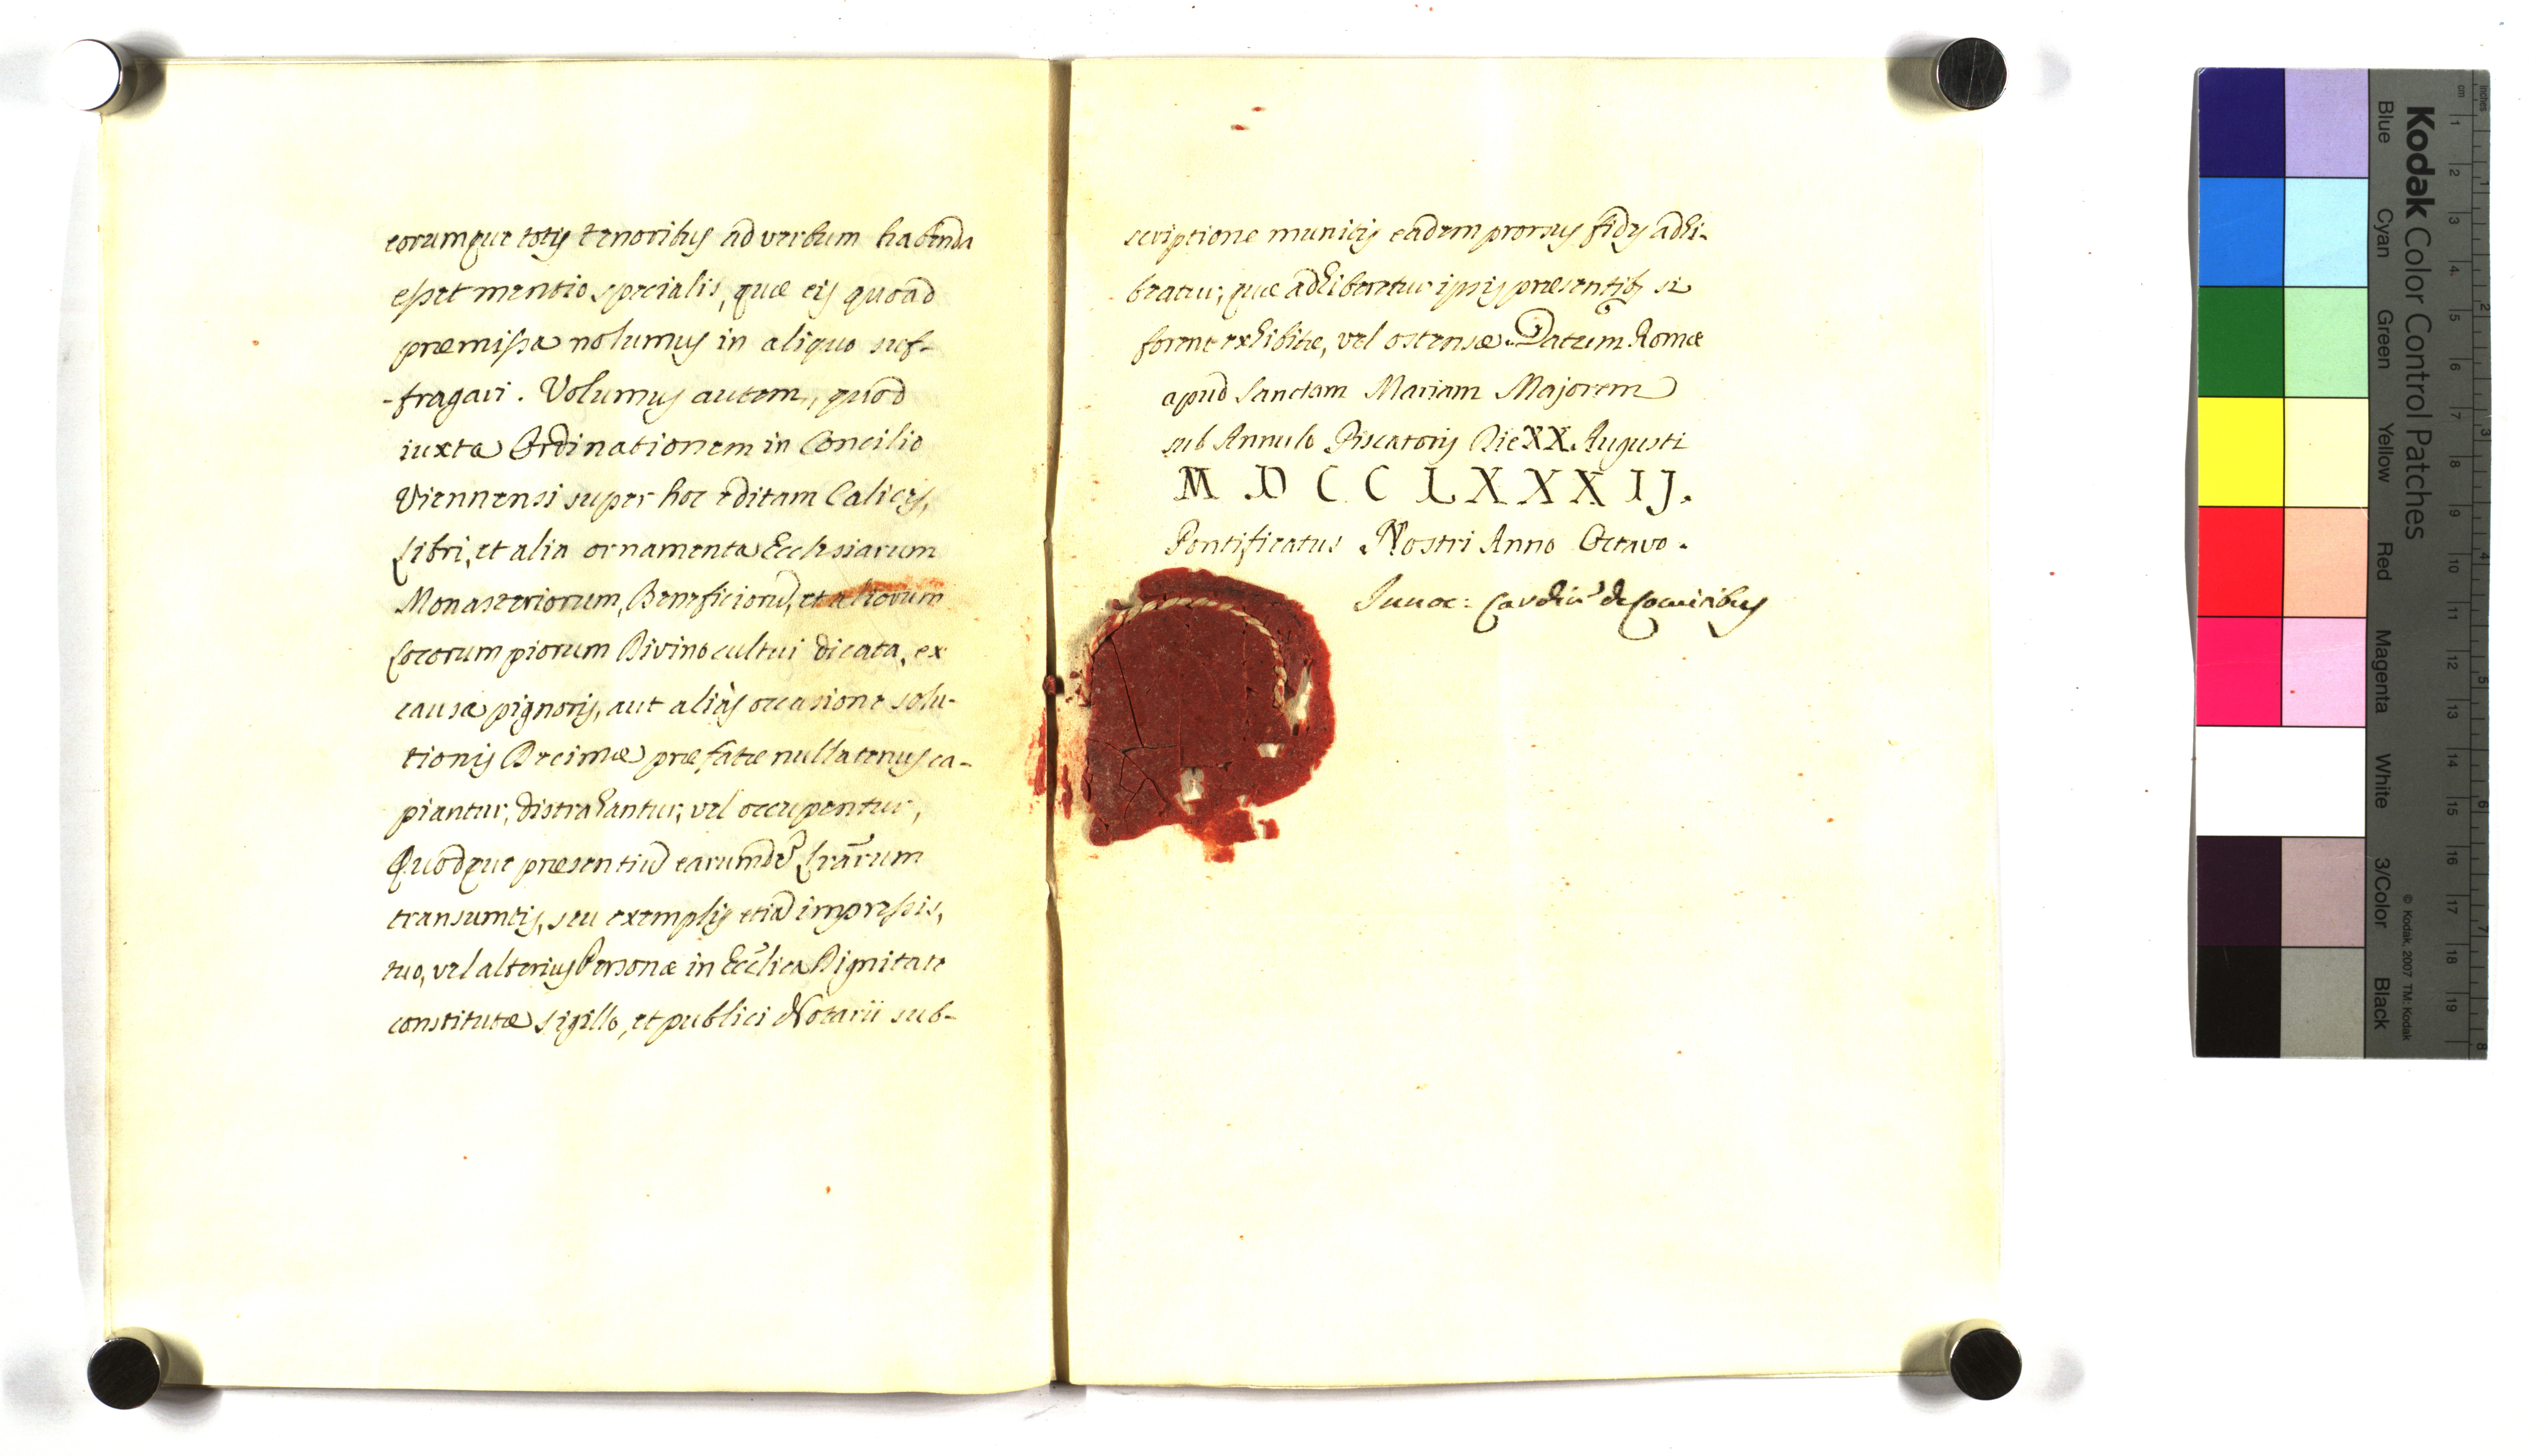 eorumque totis tenoribus ad verbum habenda
esset mentio specialis, quæ eis quoad
præmissa nolumus in aliquo suf-
-fragari. Volumus autem, quod
iuxta Ordinationem in Concilio
Viennensi super hoc editam Calices,
Libri, et alia ornamenta Ecclesiarum
Monasteriorum, Beneficiorũ, et aliorum
Locorum piorum Divino cultui dicata, ex
causa pignoris, aut aliàs occasione solu-
tionis Decimæ præfatæ nullatenus ca-
piantur, distrahantur, vel occupentur,
Quodque præsentiũ earumdẽ Lrãrum
transumtis, seu exemplis etiã impressis,
tuo, vel alterius Personæ in Ecc̃lica Dignitate
constitutæ sigillo, et publici Notarii sub-
scriptione munitis eadem prorsus fides adhi-
beatur, quæ adhiberetur ipsis præsentib₉ si
forent exhibitæ, vel ostensæ. Datum Romæ
apud Sanctam Mariam Majorem
sub Annulo Piscatoris Die XX. Augusti
M.DCCLXXXIJ.
Pontificatus Nostri Anno Octavo.
Innoc: Cardin' de Comitibus
Kodak Color Control Patches
Blue Cyan Green Yellow Red Magenta White 3/Color Black
© Kodak, 2007 TM: Kodak
cm 1 2 3 4 5 6 7 8 9 10 11 12 13 14 15 16 17 18 19
inches 1 2 3 4 5 6 7 8